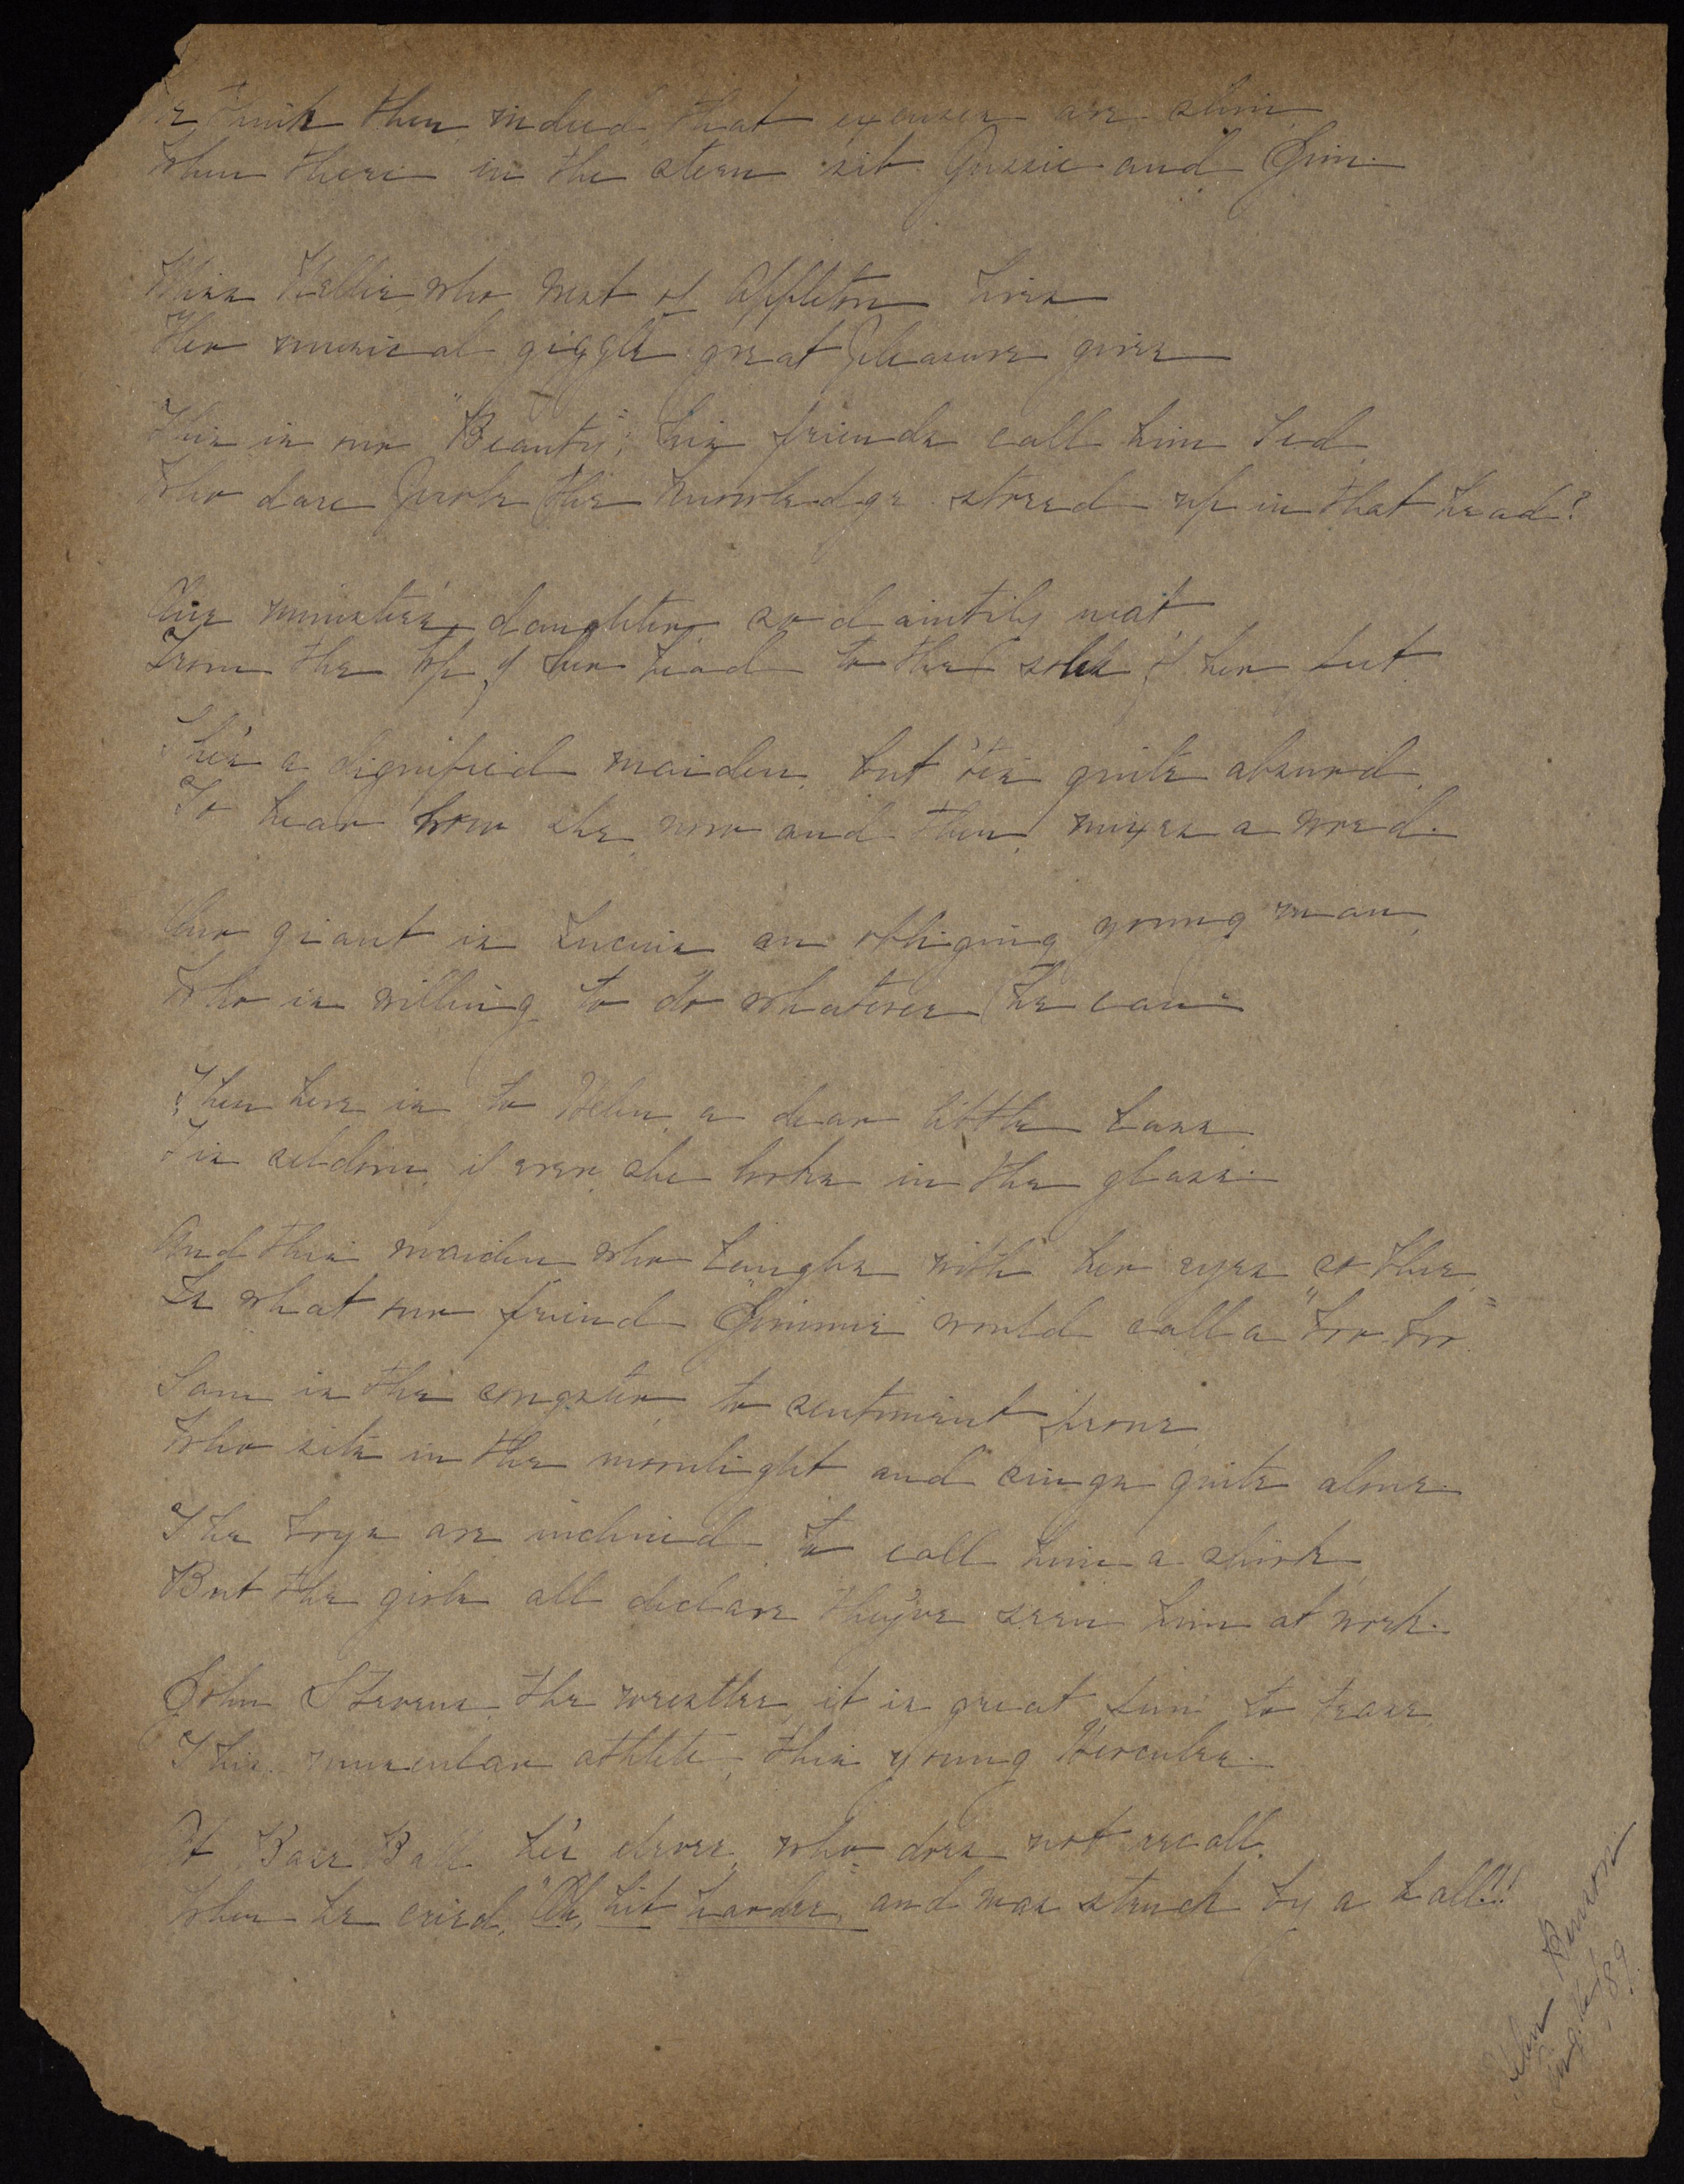 We think then, indeed, that excuses are slim,
When there in the stern sit Gussie and Jim.
Miss Nellie who west of Appleton lives
Her musical giggle great pleasure gives
This is our "Beauty"; his friends call him Ted,
Who dare probe the knowledge stored up in that head?
Our minister's daughter, so daintily neat,
From the top of her head to the soles of her feet.
She's a dignified maiden, but 'tis quite absurd,
To hear how she, now and then, mixes a word.
Our giant is Lucius an obliging young man,
Who is willing to do whatever he can.
Then here is to Helen, a dear little lass,
'Tis seldom, if ever she looks in the glass.
And this maiden who laughs with her eyes so blue,
Is what our friend "Jimmie" would call a "too-too".
Sam is the songster, to sentiment prone,
Who sits in the moonlight and sings quite alone.
The boys are inclined to call him a shirk,
But the girls all declare they've seen him at work.
John Stevens, the wrestler, it is great fun to tease,
This muscular athlete, this young Hercules.
At Base Ball he's clever, who does not recall,
When he cried, "Oh, hit harder," and was struck by a ball!!
Helen
Aug.
'89.